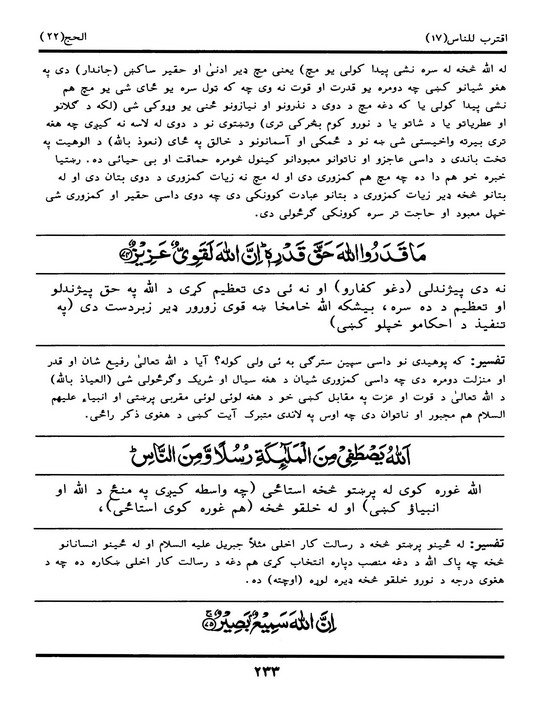 اقترب للناس(١٧) الحج(٢٢)
له الله څخه له سره نشی پیدا کولی یو مچ) یعنی مچ ډیر ادنیٰ او حقیر ساکښ (جاندار) دی په
هغو شیانو کښی چه دومره یو قدرت او قوت نه وی چه که ټول سره یو ځای شی یو مچ هم
نشی پیدا کولی یا که دغه مچ د دوی د نذرونو او نیازونو ځنی یو وړوکی شی (لکه د ګلانو
او عطریاتو یا د شاتو یا د نورو کوم بڅرکی تری) وتښتوی نو د دوی له لاسه نه کیږی چه هغه
تری بیرته واخیستی شی ښه نو د ځمکی او آسمانونو د خالق په ځای (نعوذ بالله) د الوهیت په
تخت باندی د داسی عاجزو او ناتوانو معبودانو کینول څومره حماقت او بی حیائی ده. رښتیا
خبره خو هم دا ده چه مچ هم کمزوری دی او له مچ نه زیات کمزوری د دوی بتان دی او له
بتانو څخه ډیر زیات کمزوری د بتانو عبادت کوونکی دی چه دوی داسی حقیر او کمزوری شی
خپل معبود او حاجت تر سره کوونکی ګرځولی دی.
مَا قَدَرُوا اللهَ حَقَّ قَدْرِهٖ ؕ اِنَّ اللهَ لَقَوِیٌّ عَزِیْزٌ ﴿۷۴﴾
نه دی پیژندلی (دغو کفارو) او نه ئی دی تعظیم کړی د الله په حق پیژندلو
او تعظیم د ده سره، بیشکه الله خامخا ښه قوی زورور ډیر زبردست دی (په
تنفیذ د احکامو خپلو کښی)
تفسیر: که پوهیدی نو داسی سپین سترګی به ئی ولی کوله؟ آیا د الله تعالیٰ رفیع شان او قدر
او منزلت دومره دی چه داسی کمزوری شیان د هغه سیال او شریک وګرځولی شی (العیاذ بالله)
د الله تعالیٰ د قوت او عزت په مقابل کښی خو د هغه لوئی لوئی مقربی پرښتی او انبیاء علیهم
السلام هم مجبور او ناتوان دی چه اوس په لاندی متبرک آیت کښی د هغوی ذکر راځی.
اَللهُ یَصْطَفِیْ مِنَ الْمَلٰٓئِکَةِ رُسُلًا وَّمِنَ النَّاسِ ؕ
الله غوره کوی له پرښتو څخه استاځی (چه واسطه کیږی په منځ د الله او
انبیاؤ کښی) او له خلقو څخه (هم غوره کوی استاځی)،
تفسیر: له ځینو پرښتو څخه د رسالت کار اخلی مثلاً جبریل علیه السلام او له ځینو انسانانو
څخه چه پاک الله د دغه منصب دپاره انتخاب کړی هم دغه د رسالت کار اخلی ښکاره ده چه د
هغوی درجه د نورو خلقو څخه ډیره لوړه (اوچته) ده.
اِنَّ اللهَ سَمِیْعٌۢ بَصِیْرٌ ﴿۷۵﴾
٢٣٣